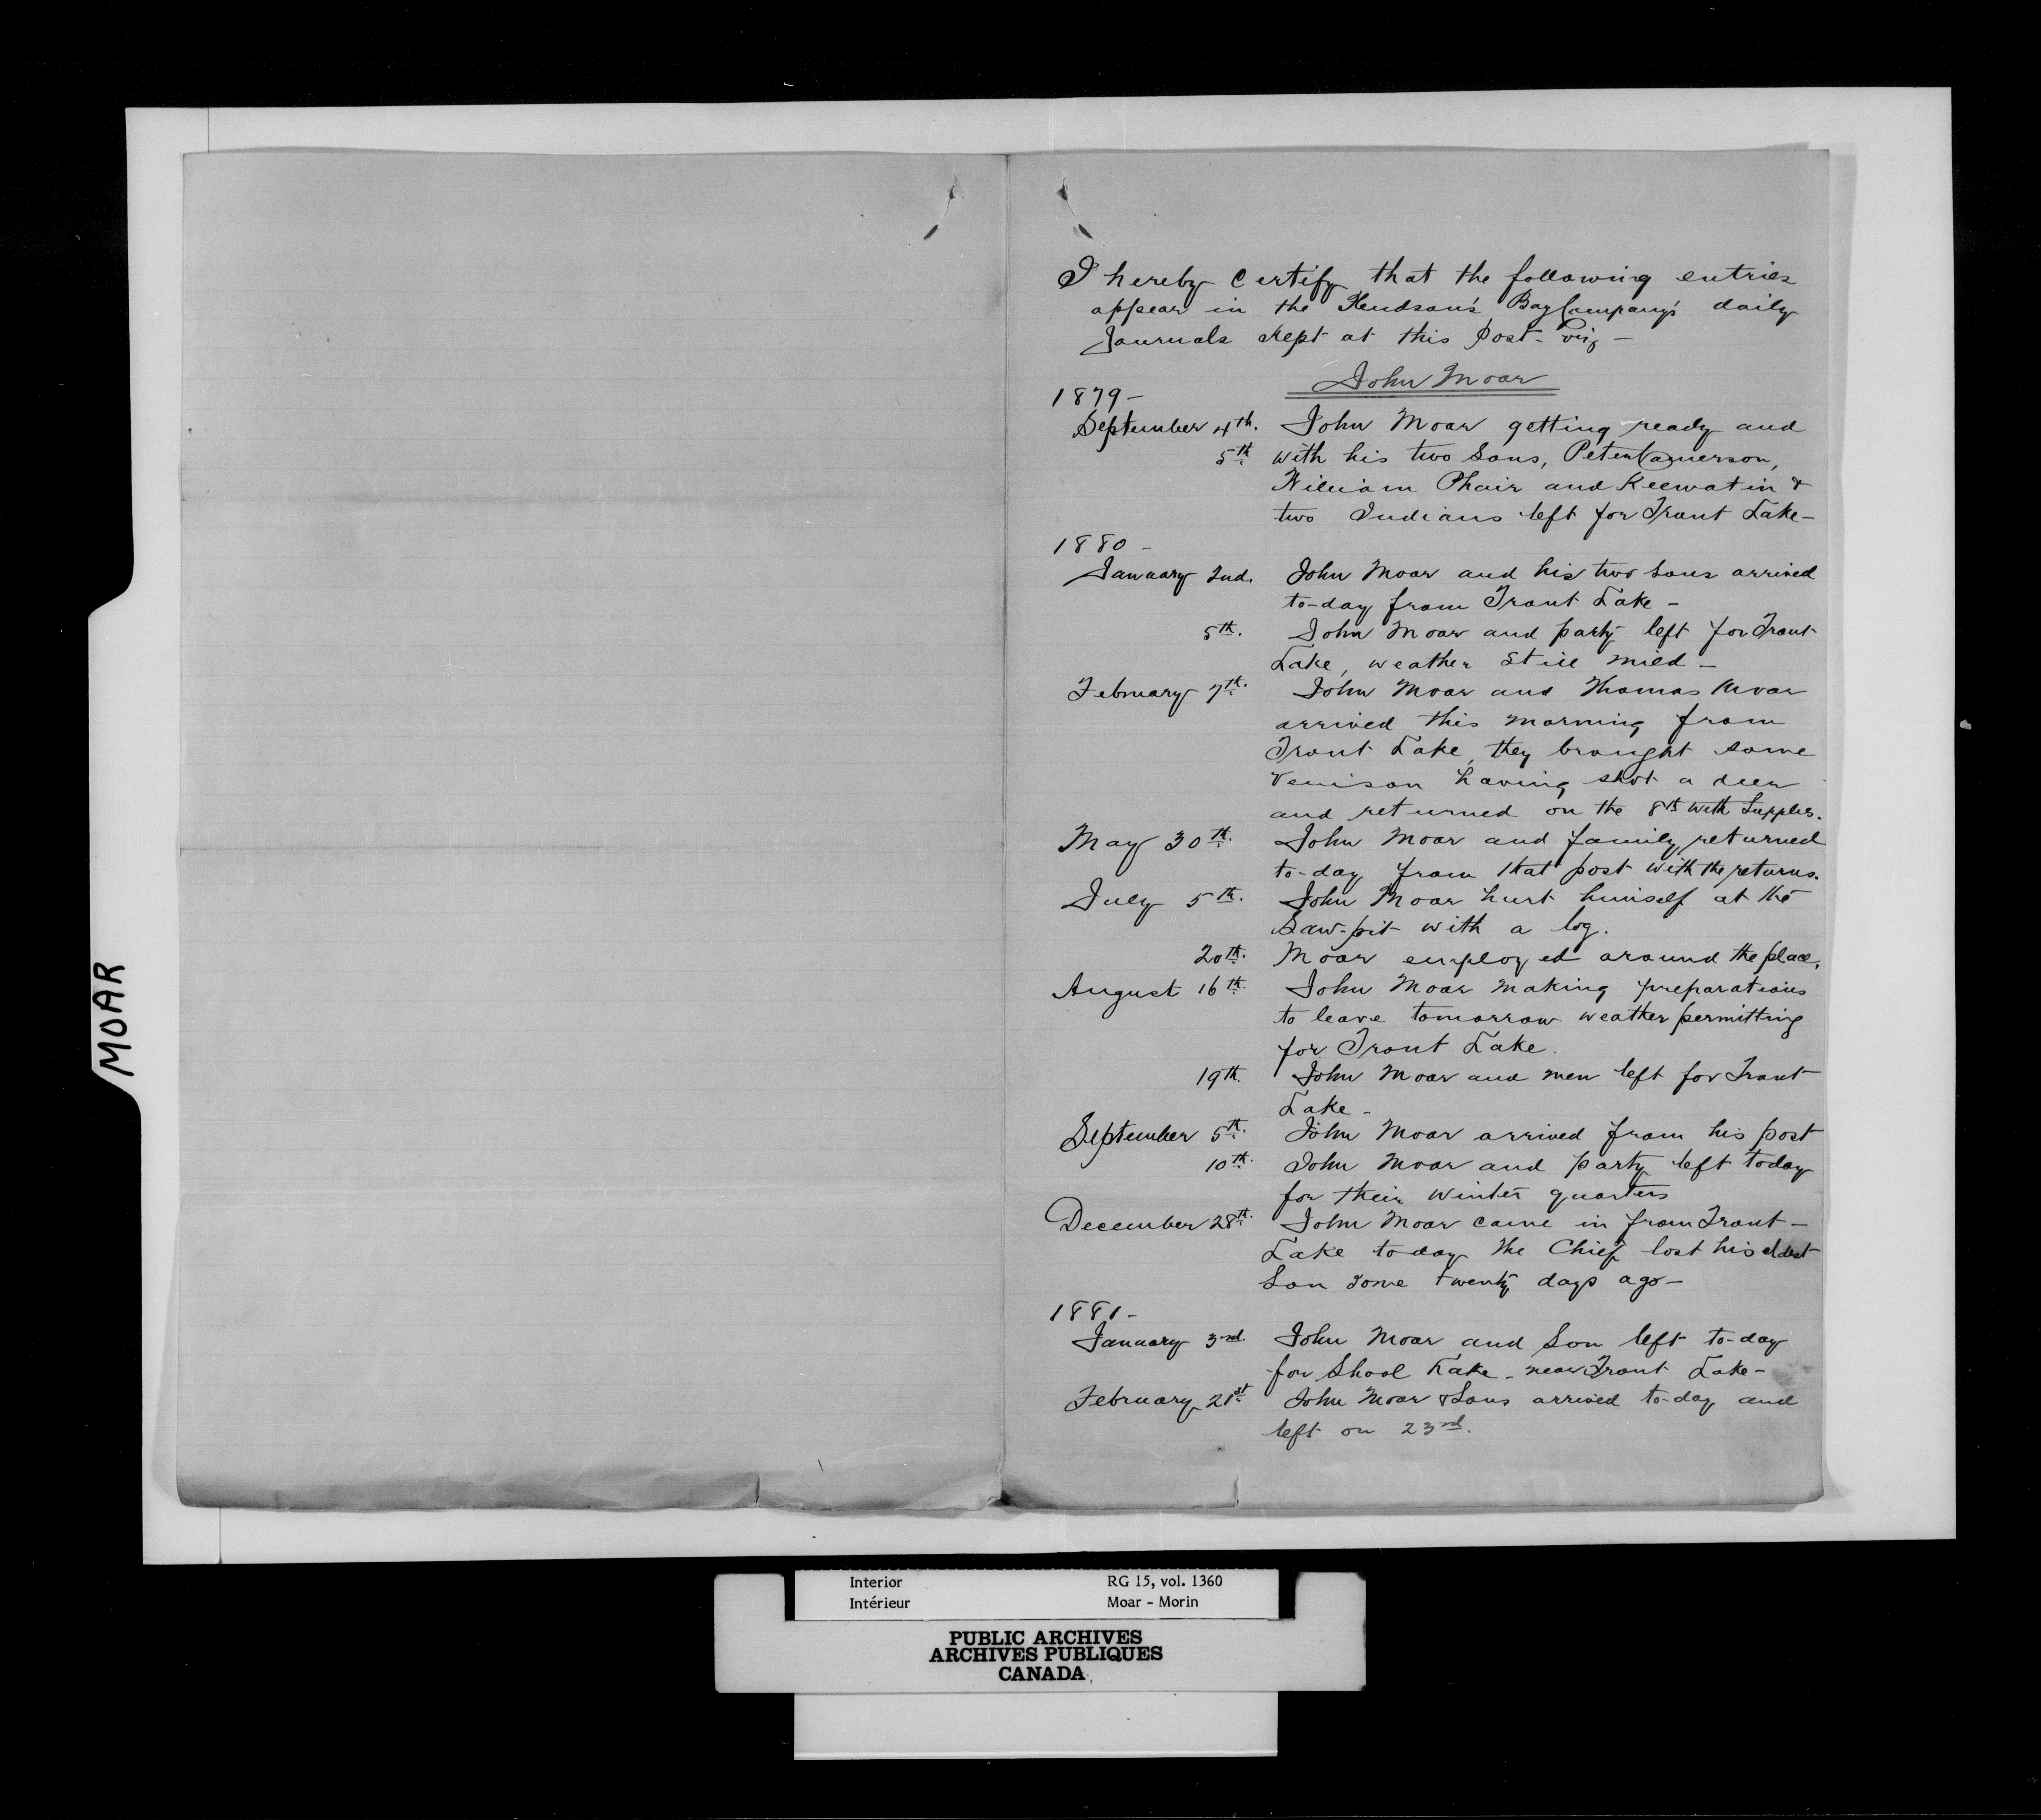 I hereby certify that the following entries
appear in the Hudson's Bay Company's daily
Journals kept at this Post - viz -
John Moar
1879 -
September 4th. John Moar getting ready and
5th with his two Sons, Peter Camerson,
William Phair and Keewatin &
two Indians left for Trout Lake -
1880 -
January 2nd. John Moar and his two sons arrived
to-day from Trout Lake -
5th. John Moar and party left for Trout
Lake, weather still mild -
February 7th. John Moar and Thomas Moar
arrived this morning from
Trout Lake, they brought some
Venison having shot a deer
and returned on the 8th with Supplies.
May 30th. John Moar and family returned
to-day from that post with the returns.
July 5th. John Moar hurt himself at the
Saw-pit with a log.
20th. Moar employed around the place.
August 16th. John Moar making preparations
to leave tomorrow weather permitting
for Trout Lake.
19th. John Moar and men left for Trout
Lake -
September 5th. John Moar arrived from his post
10th. John Moar and party left today
for their winter quarters
December 28th. John Moar came in from Trout -
Lake to day the Chief lost his eldest
Son some twenty days ago -
1881 -
January 3rd. John Moar and Son left to-day
for Shoal Lake - near Trout Lake -
February 21st John Moar & Sons arrived to-day and
left on 23rd.
MOAR
Interior RG 15, vol. 1360
Intérieur Moar - Morin
PUBLIC ARCHIVES
ARCHIVES PUBLIQUES
CANADA